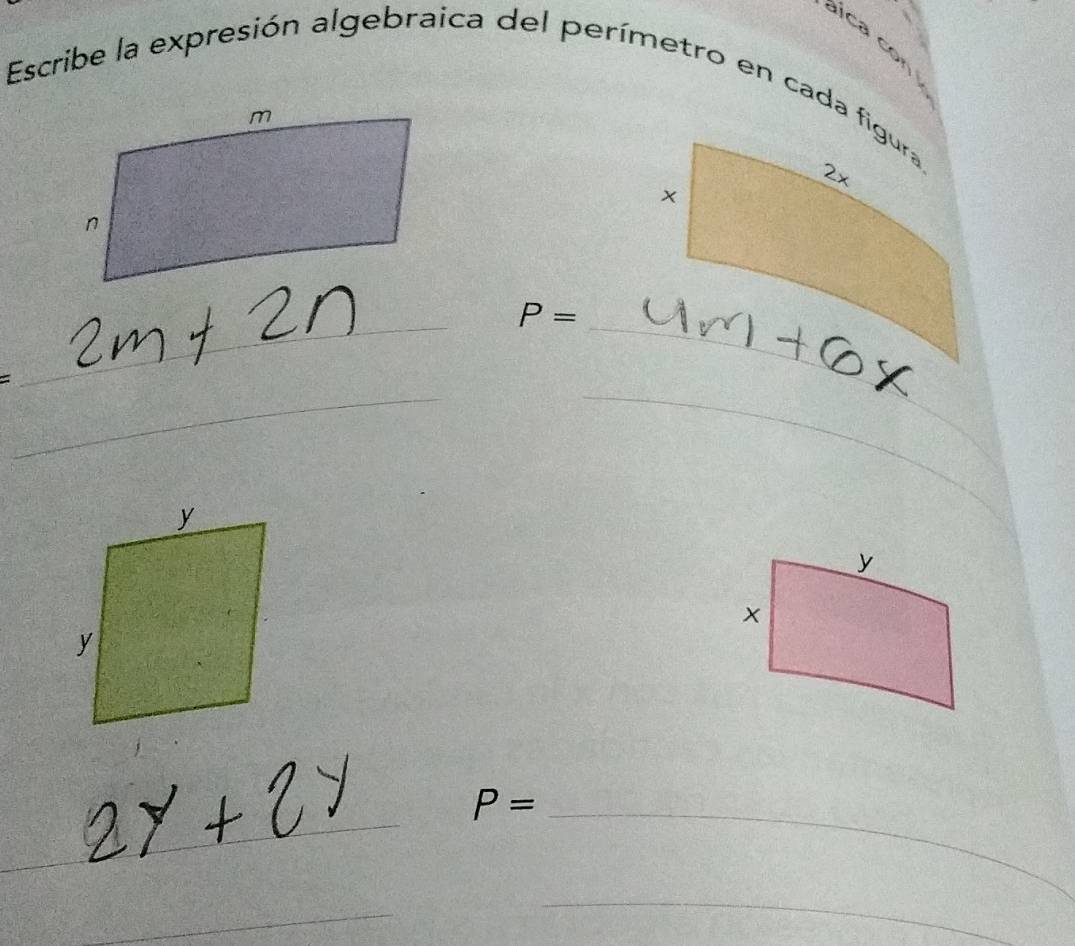 aica con
Escribe la expresión algebraica del perímetro en cada figura.
m
n
2x
x
= 2m + 2n
P = 4m + 6x
y
y
y
x
2y + 2y
P =